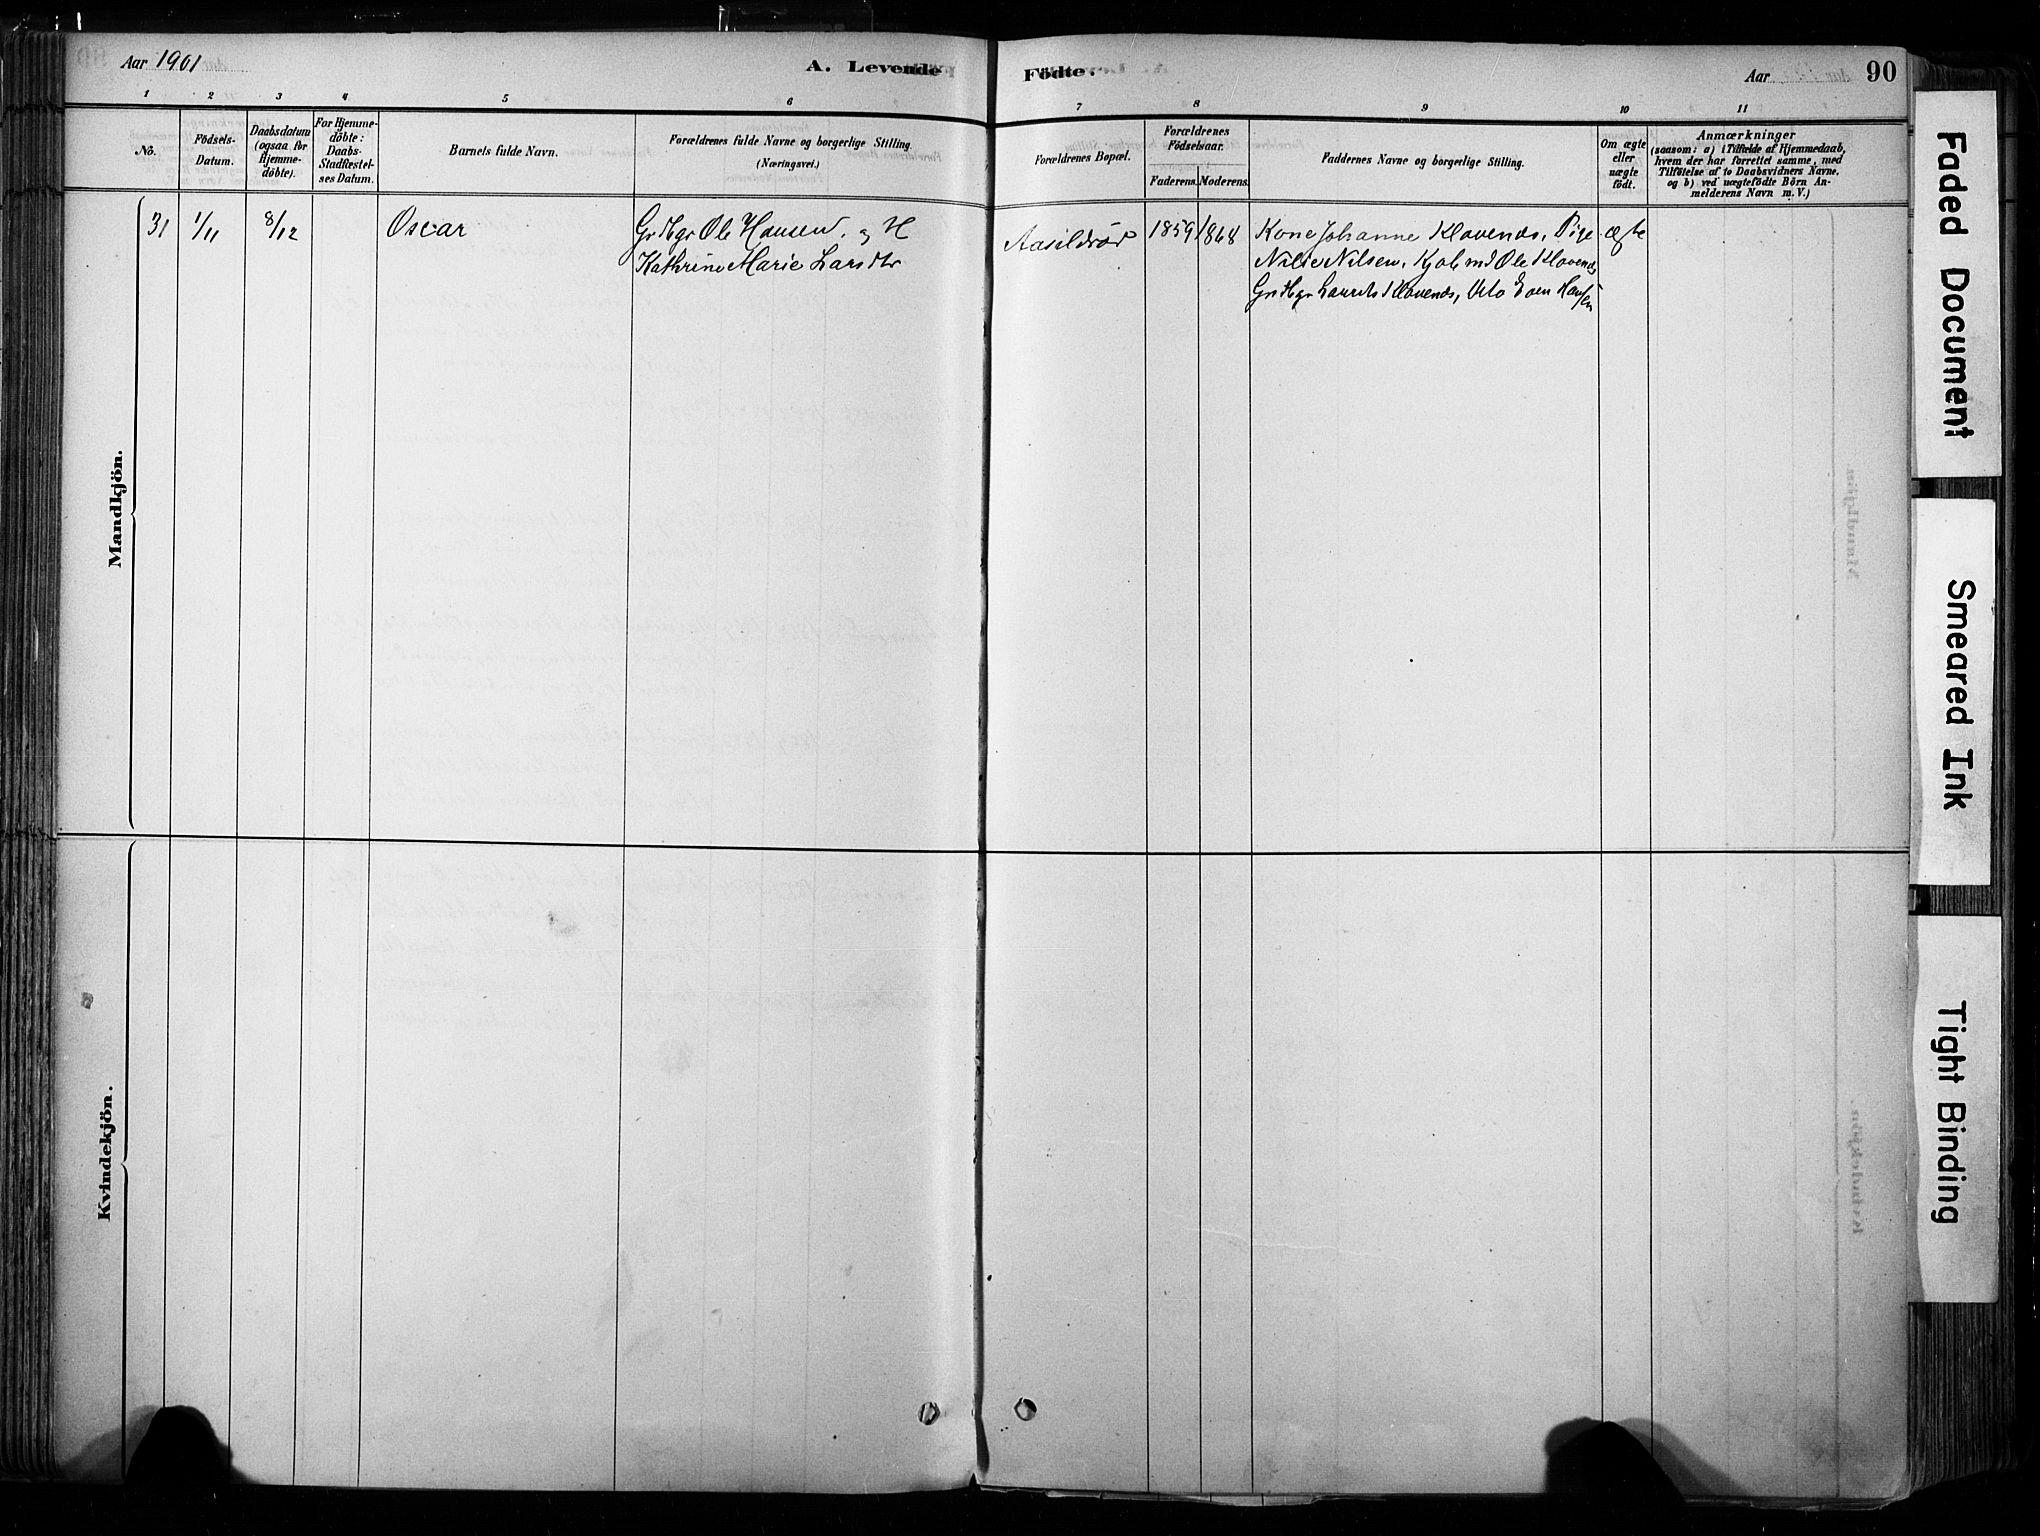 Aar 1901
A. Levende
Födte.
Aar
90
1
2
3
4
5
6
7
8
9
10
11
No.
Födsels-
Datum.
Daabsdatum
(ogsaa for
Hjemme-
döbte).
For Hjemme-
döbte:
Daabs-
Stadfæstel-
ses Datum.
Barnets fulde Navn.
Forældrenes fulde Navne og borgerlige Stilling.
(Næringsvei.)
Forældrenes Bopæl.
Forældrenes
Födselsaar.
Faderens.
Moderens.
Faddernes Navne og borgerlige Stilling.
Om ægte
eller
uægte
födt.
Anmærkninger
(saasom: a) i Tilfælde af Hjemmedaab,
hvem der har forrettet samme, med
Tilföielse af to Daabsvidners Navne,
og b) ved uægtefödte Börn An-
melderens Navn m. V.)
Mandkjön.
31
1/11
8/12
Oscar
Gr Hgr Ole Hansen og H
Kathrine Marie Larsdtr
1859
1868
Kone Johanne Klavenæs, Pige
Nilsen, Ole Klavenæs
Gr Hgr Laurits Klavenæs, Even Hansen
ægte
Kvindekjön.
Faded Document
Smeared Ink
Tight Binding